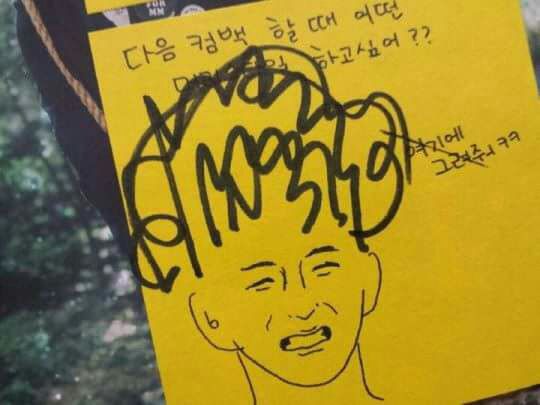 FOR
MM
다음 컴백 할 때 어떤
하고싶어??
여기에
그려주ㅓ ㅋㅋ